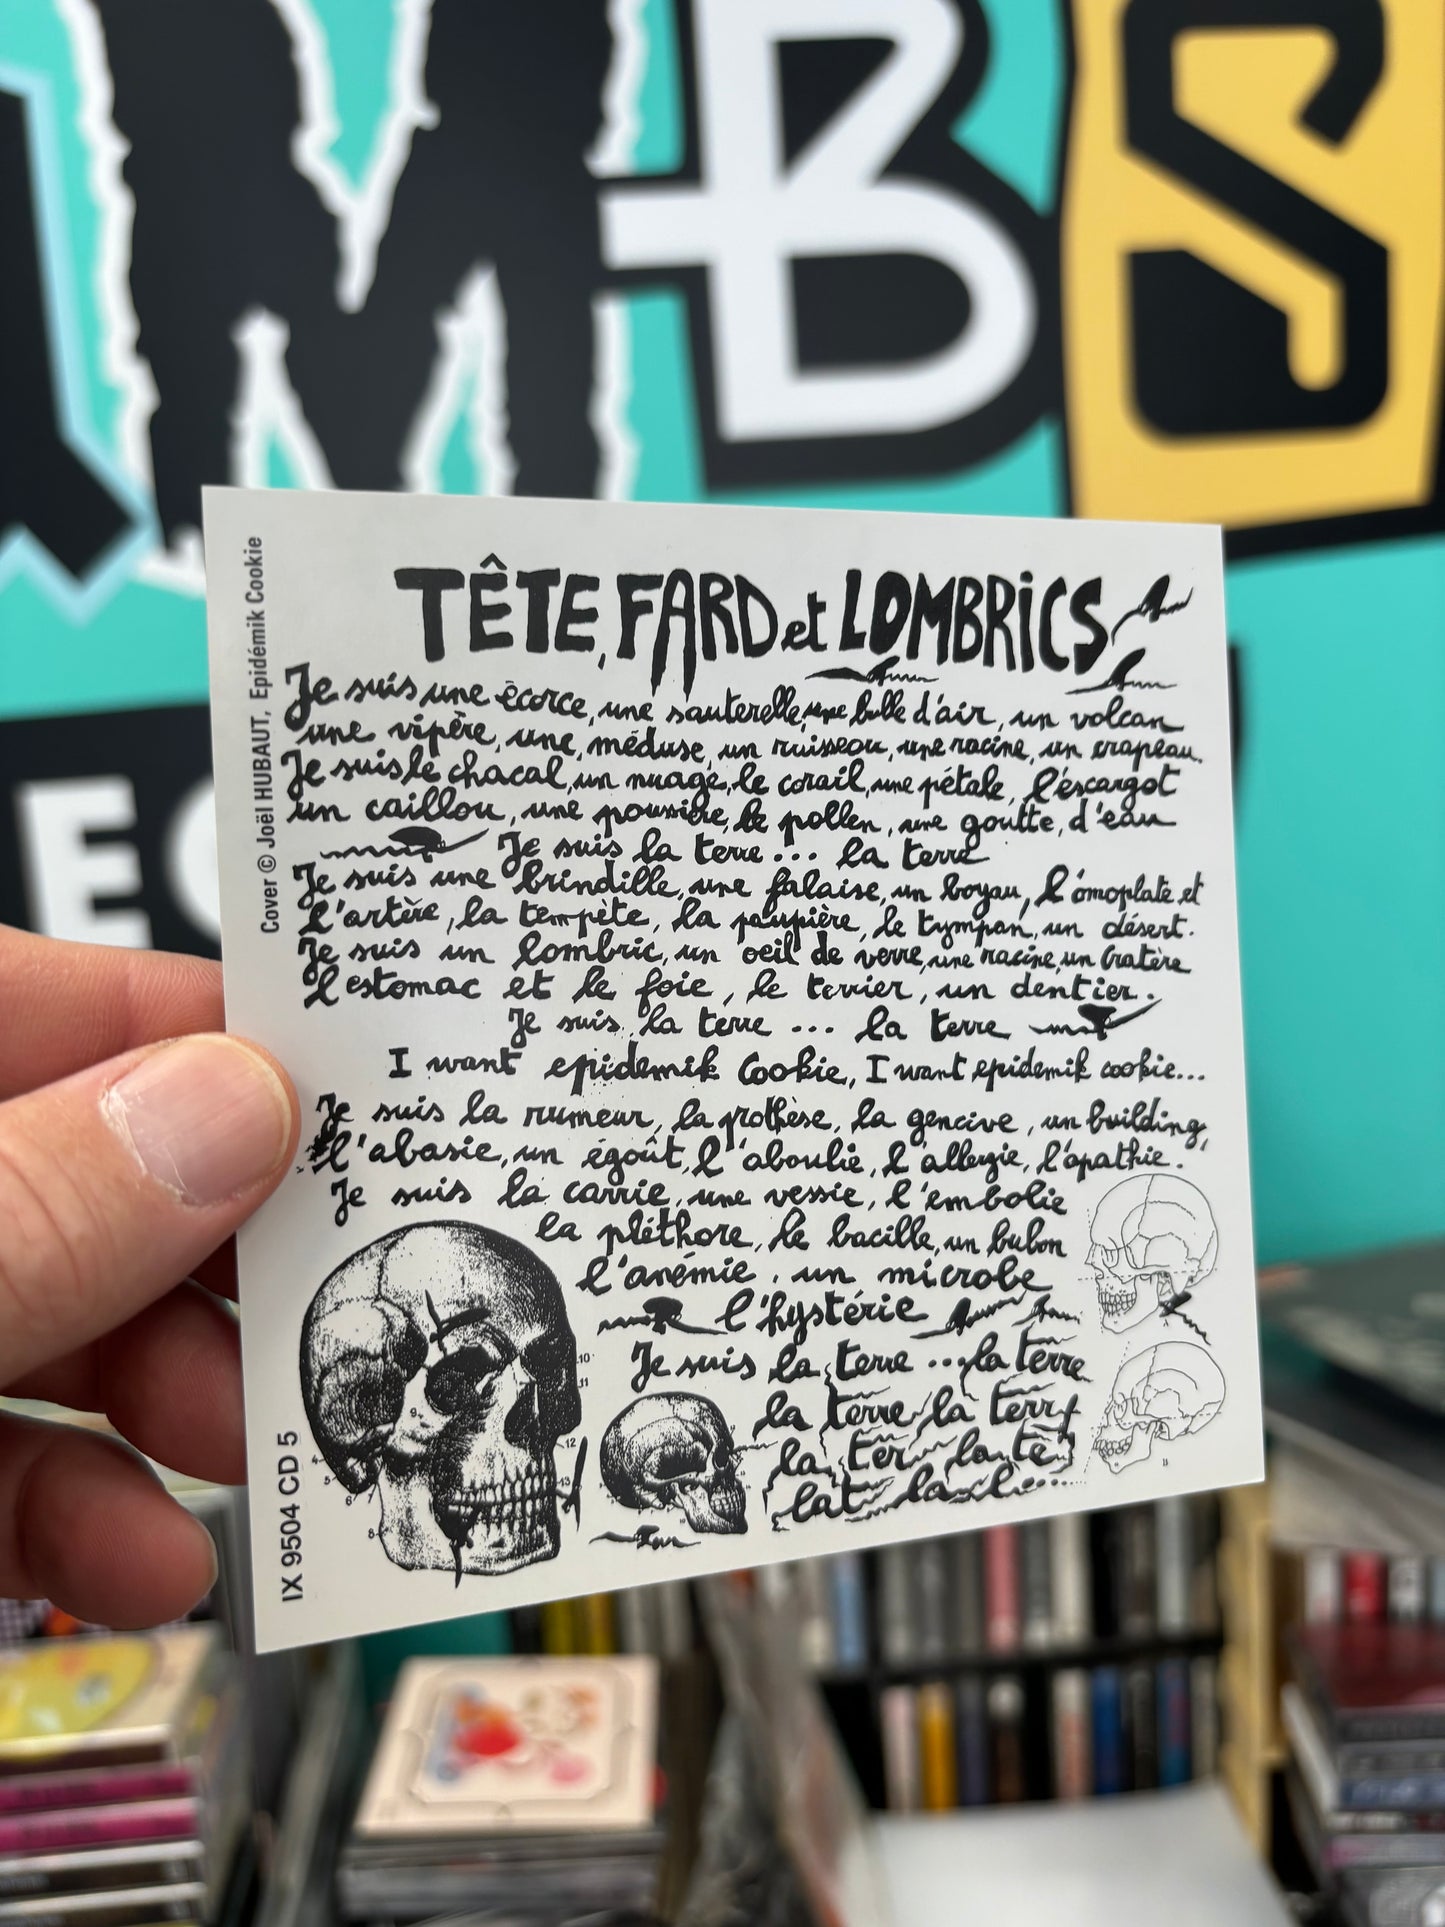 MBS
E
Cover © Joël HUBAUT, Epidémik Cookie
IX 9504 CD 5
TÊTE, FARD et LOMBRiCS
Je suis une écorce, une sauterelle, une bulle d'air, un volcan
une vipère, une méduse, un ruisseau, une racine, un crapeau.
Je suis le chacal, un nuage, le corail, une pétale, l'escargot
un caillou, une poussière, le pollen, une goutte, d'eau
Je suis la terre... la terre
Je suis une brindille, une falaise, un boyau, l'omoplate et
l'artère, la tempète, la paupière, le tympan, un désert.
Je suis un lombric, un oeil de verre, une racine, un cratère
l'estomac et le foie, le terrier, un dentier.
Je suis la terre ... la terre
I want epidemik cookie, I want epidemik cookie...
Je suis la rumeur, la prothèse, la gencive, un building,
l'abasie, un égoût, l'aboulie, l'allergie, l'apathie.
Je suis la carrie, une vessie, l'embolie
la pléthore, le bacille, un bubon
l'anémie, un microbe
l'hystérie
Je suis la terre ... la terre
la terre la terr
la ter la te
lat la l....
10
11
9
12
13
4
6
7
8